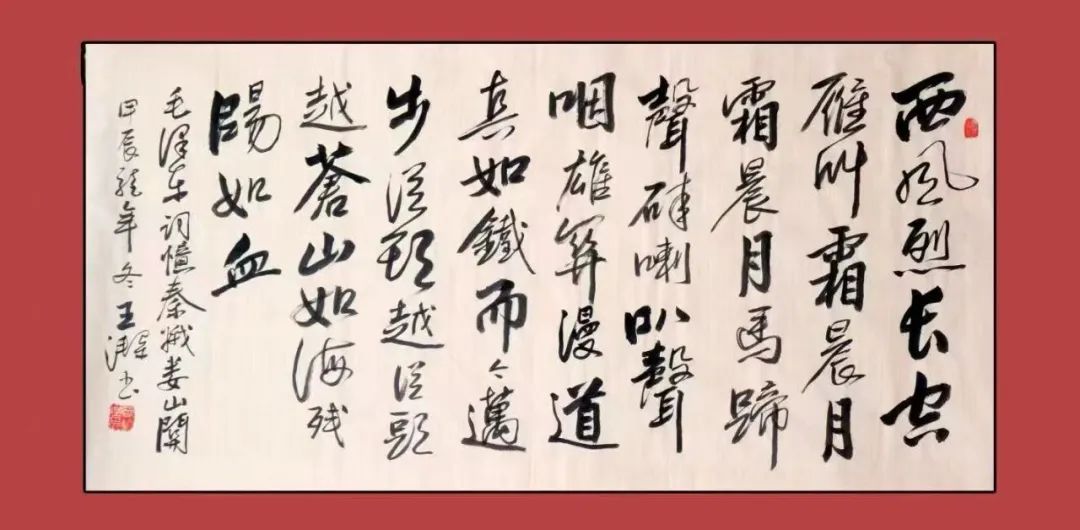 西风烈长空
雁叫霜晨月
霜晨月馬蹄
聲碎喇叭聲
咽雄關漫道
真如鐵而今邁
步從頭越從頭
越蒼山如海残
陽如血
毛澤东词憶秦娥娄山關
甲辰龍年冬王书